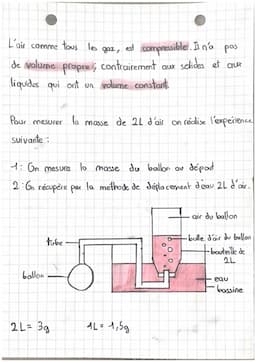 L'air comme tous les gaz, est compressible. Il n'a pas
de volume propre, contrairement aux solides et aux
liquides qui ont un volume constant.
Pour mesurer la masse de 2L d'air on réalise l'expérience
suivante :
1: On mesure la masse du ballon au départ
2: On récupère par la méthode de déplacement d'eau 2L d'air.
air du ballon
tube
bulle d'air du ballon
bouteille de
2L
ballon
eau
bassine
2L = 3g 1L = 1,5g